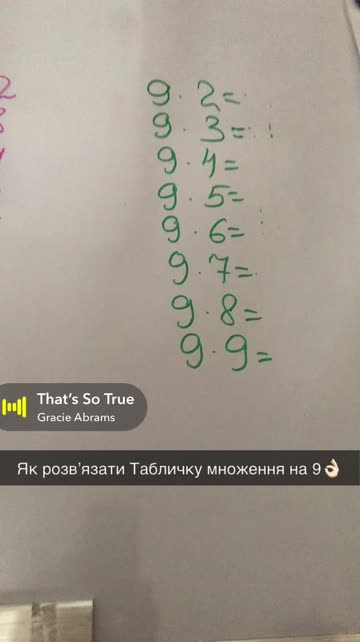 9 · 2 =
9 · 3 =
9 · 4 =
9 · 5 =
9 · 6 =
9 · 7 =
9 · 8 =
9 · 9 =
That's So True
Gracie Abrams
Як розв'язати Табличку множення на 9👌🏻